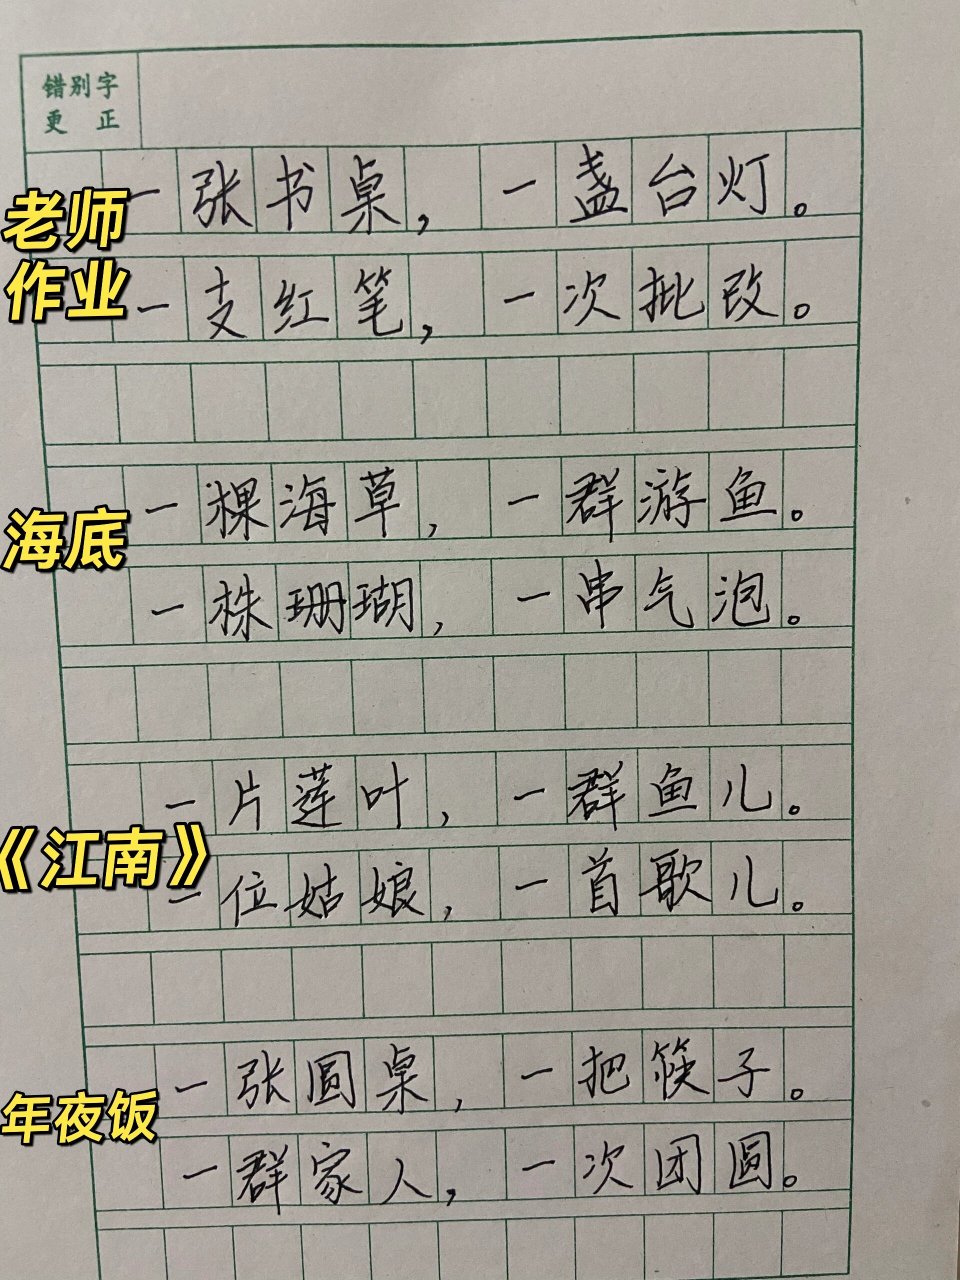 错别字
更 正
老师
作业
一张书桌，一盏台灯。
一支红笔，一次批改。
海底
一棵海草，一群游鱼。
一株珊瑚，一串气泡。
《江南》
一片莲叶，一群鱼儿。
一位姑娘，一首歌儿。
年夜饭
一张圆桌，一把筷子。
一群家人，一次团圆。